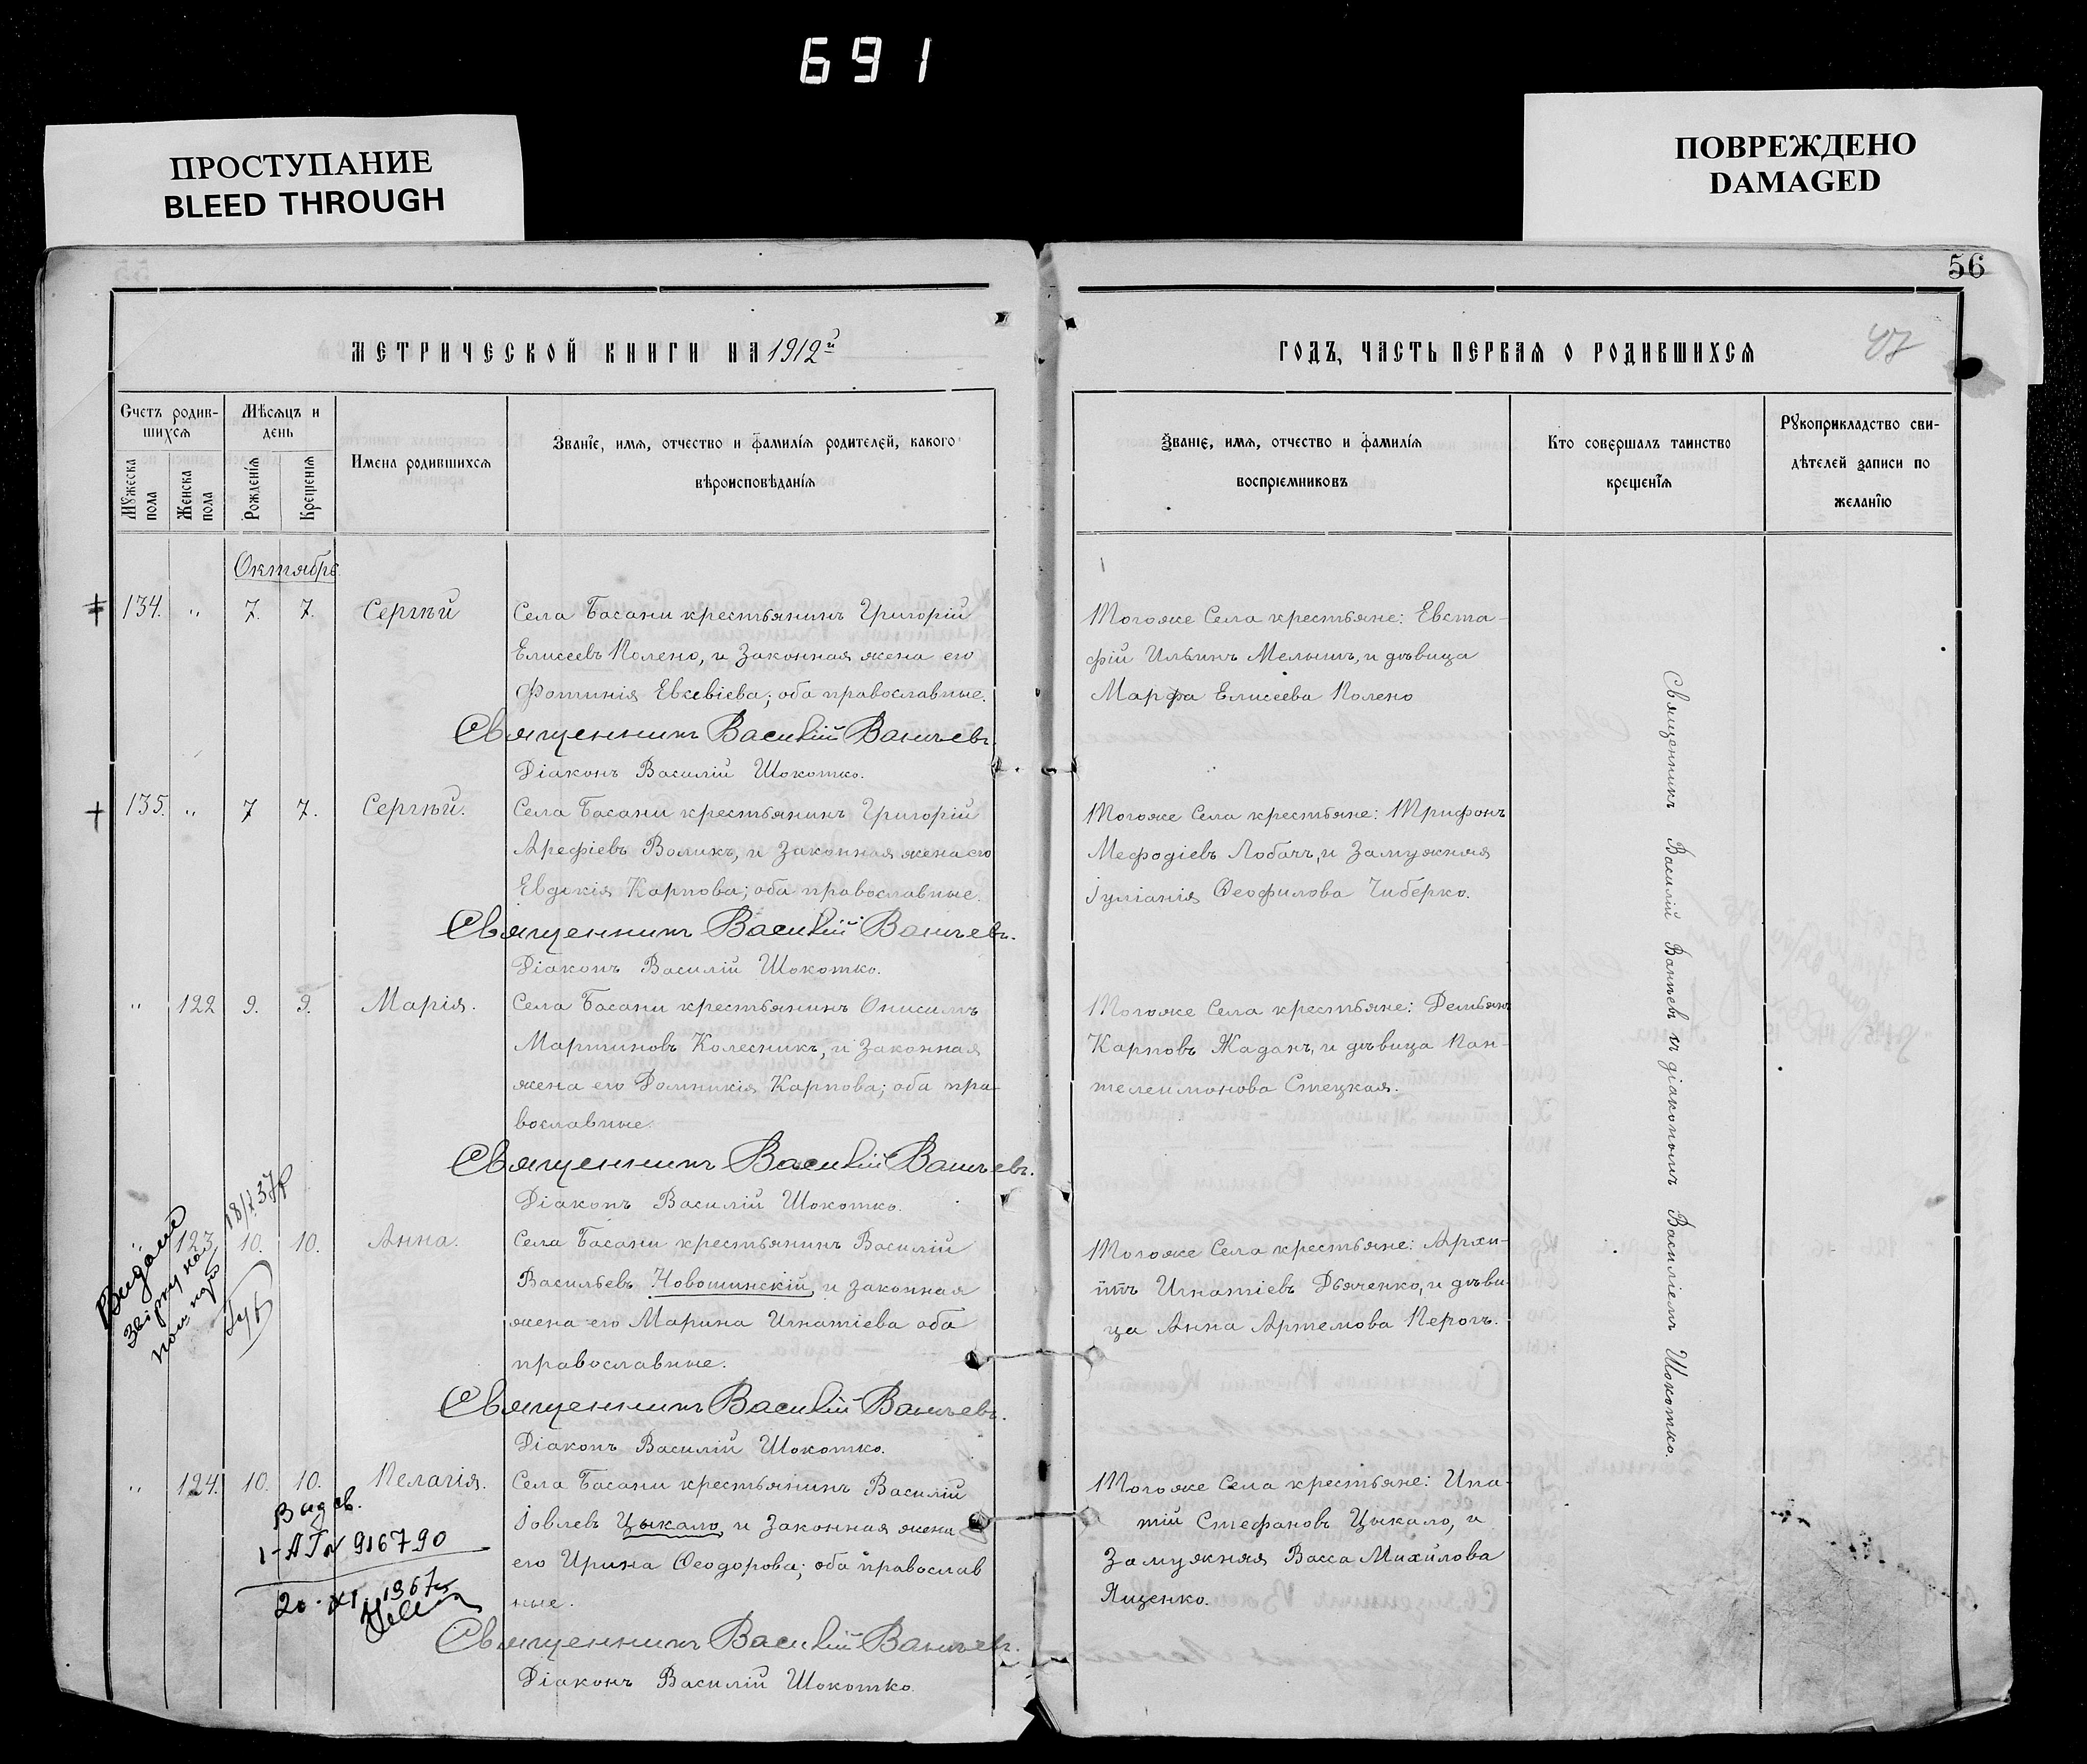 691
ПРОСТУПАНИЕ
BLEED THROUGH
ПОВРЕЖДЕНО
DAMAGED
56
МЕТРИЧЕСКОЙ КНИГИ НА 1912й
ГОДЪ, ЧАСТЬ ПЕРВАЯ О РОДИВШИХСЯ
47
Счетъ родив-
шихся
Мужеска пола
Женска пола
Мѣсяцъ и
день
Рожденія
Крещенія
Имена родившихся
Званіе, имя, отчество и фамилія родителей, какого
вѣроисповѣданія
Званіе, имя, отчество и фамилія
воспріемниковъ
Кто совершалъ таинство
крещенія
Рукоприкладство сви-
дѣтелей записи по
желанію
Октябрь
134. " 7. 7. Сергѣй
Села Басани крестьянинъ Григорій
Елисеевъ Полено, и законная жена его
Фотинія Евсевіева; оба православные.
Священникъ Василій Ваньевъ.
Діаконъ Василій Шокотко.
Тогоже Села крестьяне: Евста-
фій Ильинъ Мелышъ, и дѣвица
Марфа Елисеева Полено
135. " 7 7. Сергѣй.
Села Басани крестьянинъ Григорій
Арефіевъ Воликъ, и законная жена его
Евдокія Карпова; оба православные.
Священникъ Василій Ваньевъ.
Діаконъ Василій Шокотко.
Тогоже Села крестьяне: Трифонъ
Мефодіевъ Лобачъ, и замужняя
Іуліанія Феофилова Чиберко.
" 122 9. 9. Марія.
Села Басани крестьянинъ Онисимъ
Мартиновъ Колесникъ, и законная
жена его Домникія Карпова; оба пра-
вославные.
Священникъ Василій Ваньевъ.
Діаконъ Василій Шокотко.
Тогоже Села крестьяне: Демьянъ
Карповъ Жаданъ, и дѣвица Пан-
телеимонова Стецкая.
" 123 10. 10. Анна.
Села Басани крестьянинъ Василій
Васильевъ Новошинскій, и законная
жена его Марина Игнатіева оба
православные.
Священникъ Василій Ваньевъ.
Діаконъ Василій Шокотко.
Тогоже Села крестьяне: Архи-
ппъ Игнатіевъ Дьяченко, и дѣви-
ца Анна Артемова Перогъ.
" 124. 10. 10. Пелагія.
Села Басани крестьянинъ Василій
Іовлевъ Цыкало, и законная жена
его Ирина Феодорова; оба православ
ные.
Священникъ Василій Ваньевъ.
Діаконъ Василій Шокотко.
Тогоже Села крестьяне: Ипа-
тій Стефановъ Цыкало, и
замужняя Васса Михайлова
Ященко.
Священникъ Василій Ваньевъ съ діакономъ Василіемъ Шокотко.
916790
20. XI. 1967